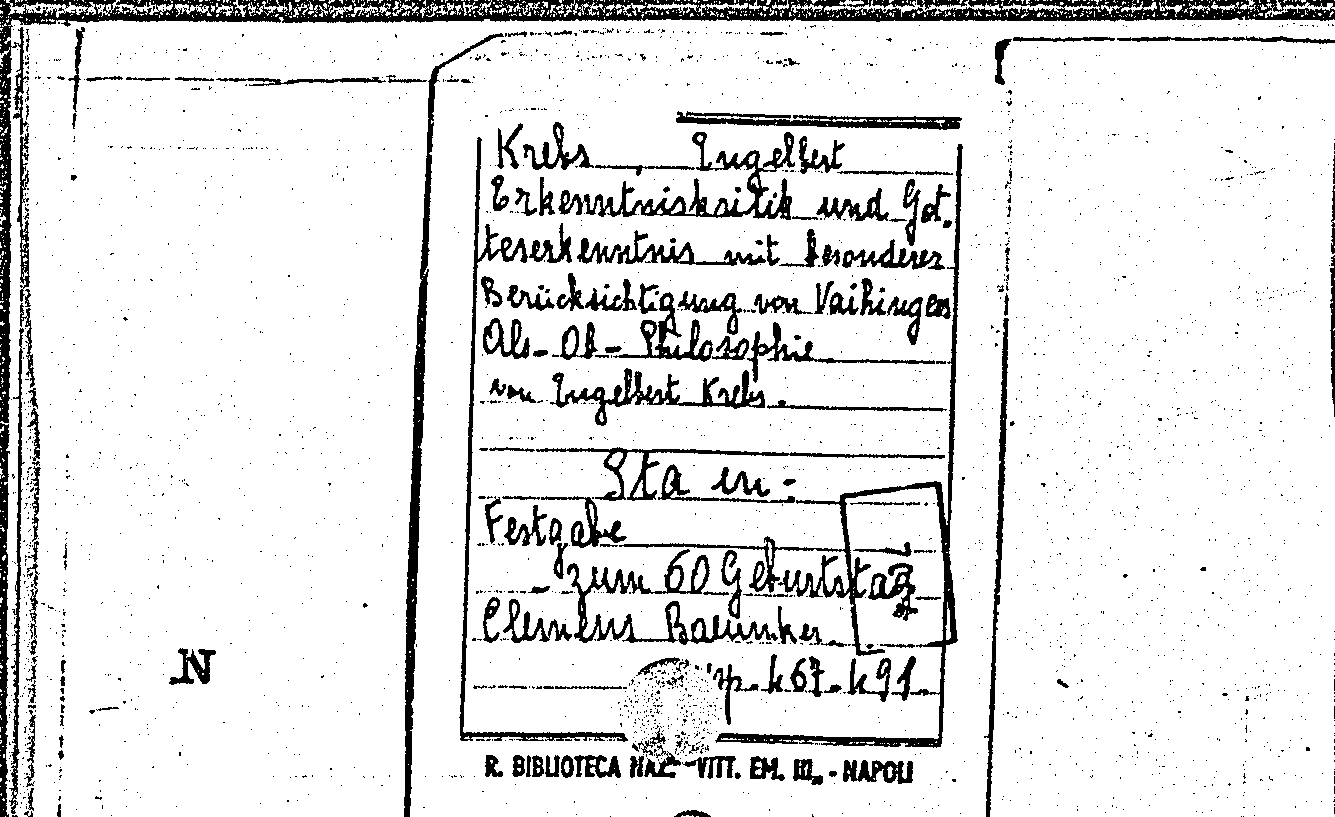 Krebs, Engelbert
Erkenntniskritik und Got-
teserkenntnis mit besonderer
Berücksichtigung von Vaihingers
Als-Ob-Philosophie
von Engelbert Krebs.
Sta in:
Festgabe
- zum 60 Geburtstag
Clemens Baeumker.
pp. 467-491.
N
R. BIBLIOTECA NAZ. VITT. EM. III. - NAPOLI